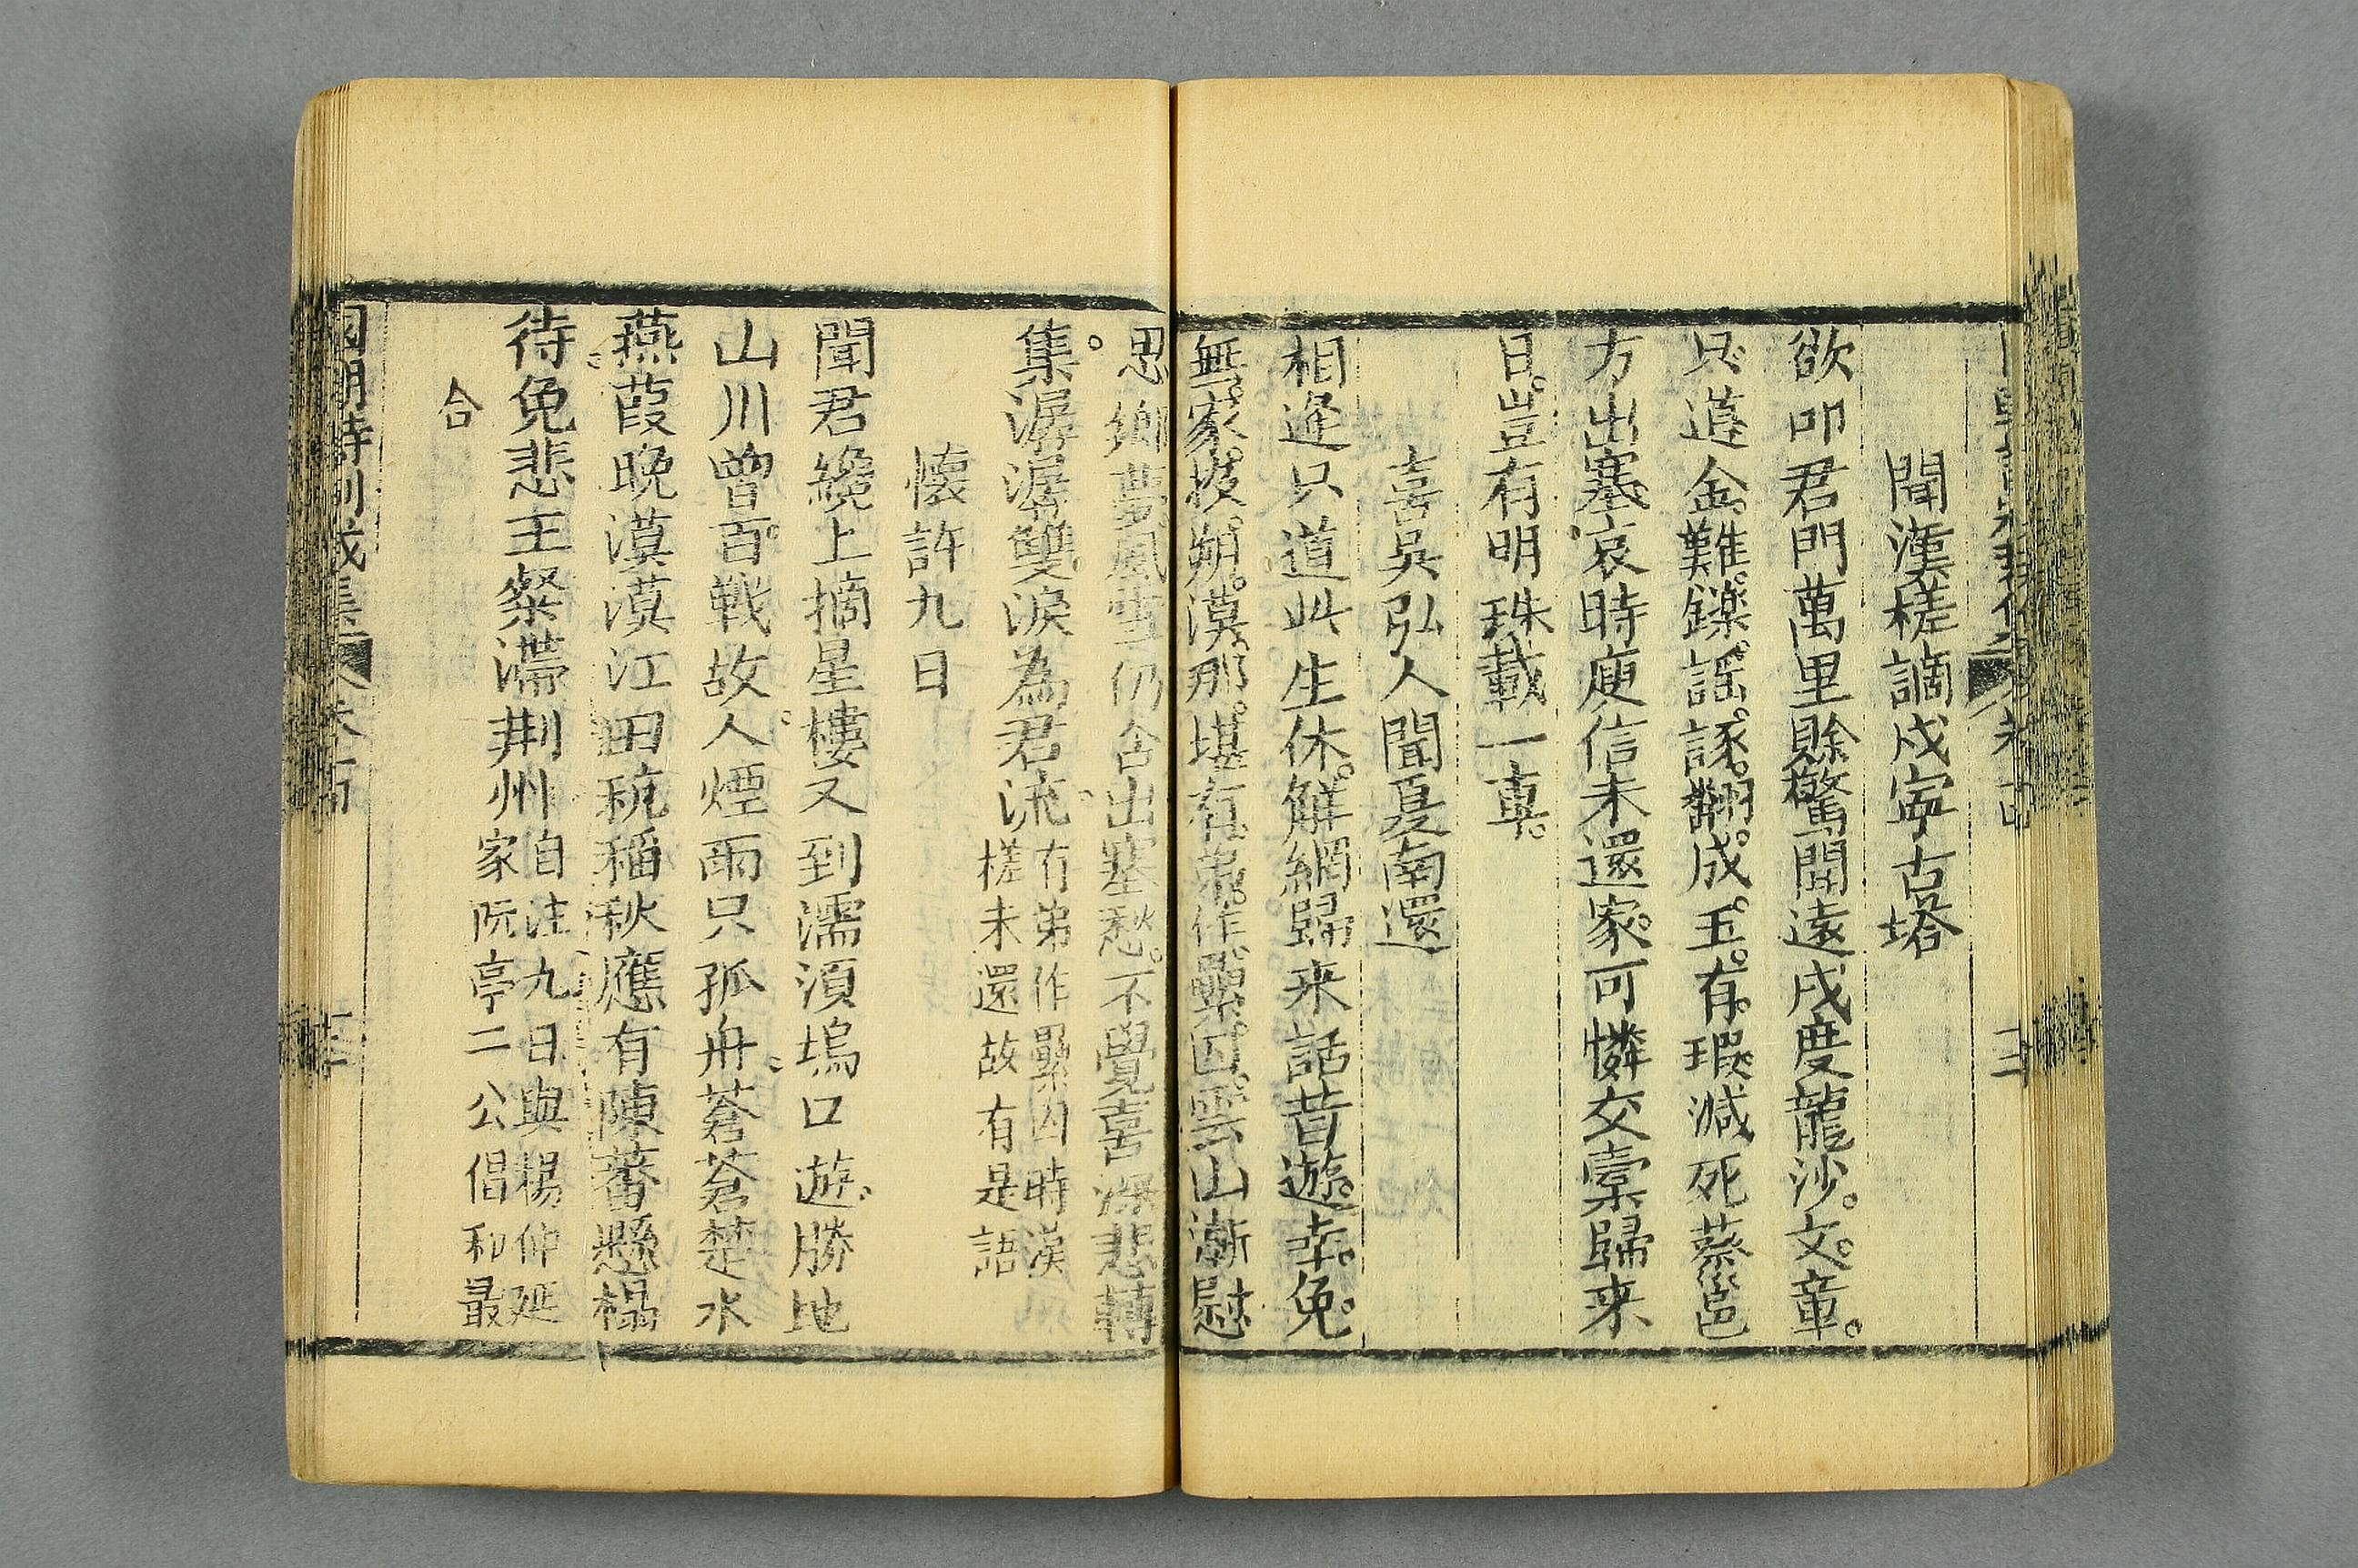 聞漢槎謫戍寧古塔
欲叩君門萬里賒驚聞遠戍度龍沙文章
只道金難鑠謠諑翻成玉有瑕減死蔡邕
方出塞哀時庾信未還家可憐交槖歸来
日豈有明珠載一車
喜吳弘人聞夏南還
相逢只道此生休解網歸来話昔遊幸免
無家投朔漠那堪有弟作纍囚雲山漸慰
思鄉夢風雪仍含出塞愁不覺喜深悲轉
集潺潺雙淚為君流有弟作纍囚時漢
槎未還故有是語
懷許九日
聞君纔上摘星樓又到濡湏塢口遊勝地
山川曾百戰故人煙雨只孤舟蒼蒼楚水
燕葭晚漠漠江田䅉稻秋應有陳蕃懸榻
待免悲王粲滯荆州自注九日與楊仲延
家阮亭二公倡和最
合
國朝詩別裁集 卷十四